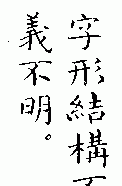 字形結構
義不明。